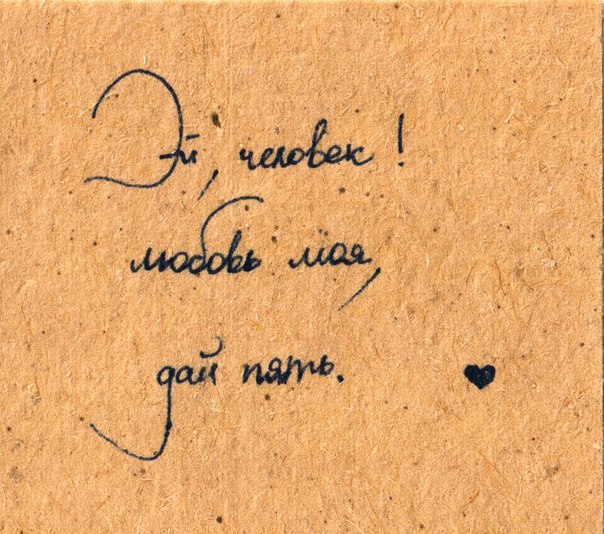 Эй, человек!
любовь моя,
дай пять.